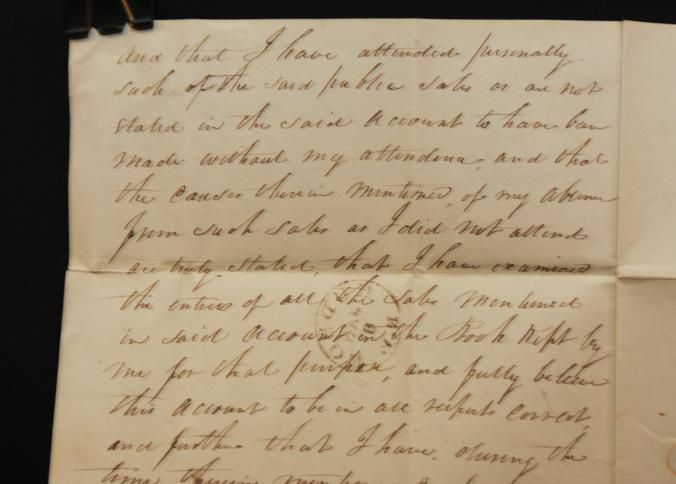 and that I have attended personally
such of the said public sales as are not
stated in the said account to have been
made without my attendance, and that
the causes therein mentioned, of my absence
from such sales as I did not attend
are truly stated, that I have examined
the entries of all the sales mentioned
in said account in the Book kept by
me for that purpose, and fully believe
this account to be in all respects correct,
and further that I have, during the
time therein
N.Y.